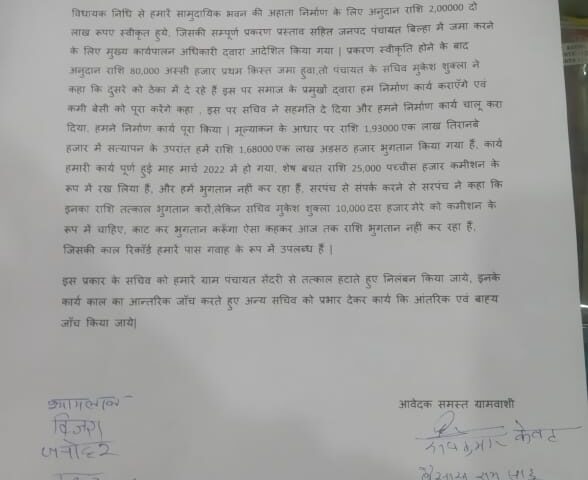 विधायक निधि से हमारे सामुदायिक भवन की अहाता निर्माण के लिए अनुदान राशि 2,00000 दो
लाख रूपए स्वीकृत हुये, जिसकी सम्पूर्ण प्रकरण प्रस्ताव सहित जनपद पंचायत बिल्हा में जमा करने
के लिए मुख्य कार्यपालन अधिकारी द्वारा आदेशित किया गया | प्रकरण स्वीकृति होने के बाद
अनुदान राशि 80,000 अस्सी हजार प्रथम किस्त जमा हुवा,तो पंचायत के सचिव मुकेश शुक्ला ने
कहा कि दुसरे को ठेका में दे रहे हैं इस पर समाज के प्रमुखों द्वारा हम निर्माण कार्य कराएँगे एवं
कमी बेसी को पूरा करेंगे कहा , इस पर सचिव ने सहमति दे दिया और हमने निर्माण कार्य चालू करा
दिया, हमने निर्माण कार्य पूरा किया | मूल्याकन के आधार पर राशि 1,93000 एक लाख तिरानबे
हजार में सत्यापन के उपरांत हमें राशि 1,68000 एक लाख अडसठ हजार भुगतान किया गया हैं, कार्य
हमारी कार्य पूर्ण हुई माह मार्च 2022 में हो गया, शेष बचत राशि 25,000 पच्चीस हजार कमीशन के
रूप में रख लिया हैं, और हमें भुगतान नही कर रहा हैं, सरपंच से संपर्क करने से सरपंच ने कहा कि
इनका राशि तत्काल भुगतान करो,लेकिन सचिव मुकेश शुक्ला 10,000 दस हजार मेरे को कमीशन के
रूप में चाहिए, काट कर भुगतान करूँगा ऐसा कहकर आज तक राशि भुगतान नहीं कर रहा हैं,
जिसकी काल रिकॉर्ड हमारे पास गवाह के रूप में उपलब्ध हैं |
इस प्रकार के सचिव को हमारे ग्राम पंचायत सेंदरी से तत्काल हटाते हुए निलंबन किया जाये, इनके
कार्य काल का आन्तरिक जाँच करते हुए अन्य सचिव को प्रभार देकर कार्य कि आंतरिक एवं बाह्य
जाँच किया जाये|
आवेदक समस्त ग्रामवाशी
केवट